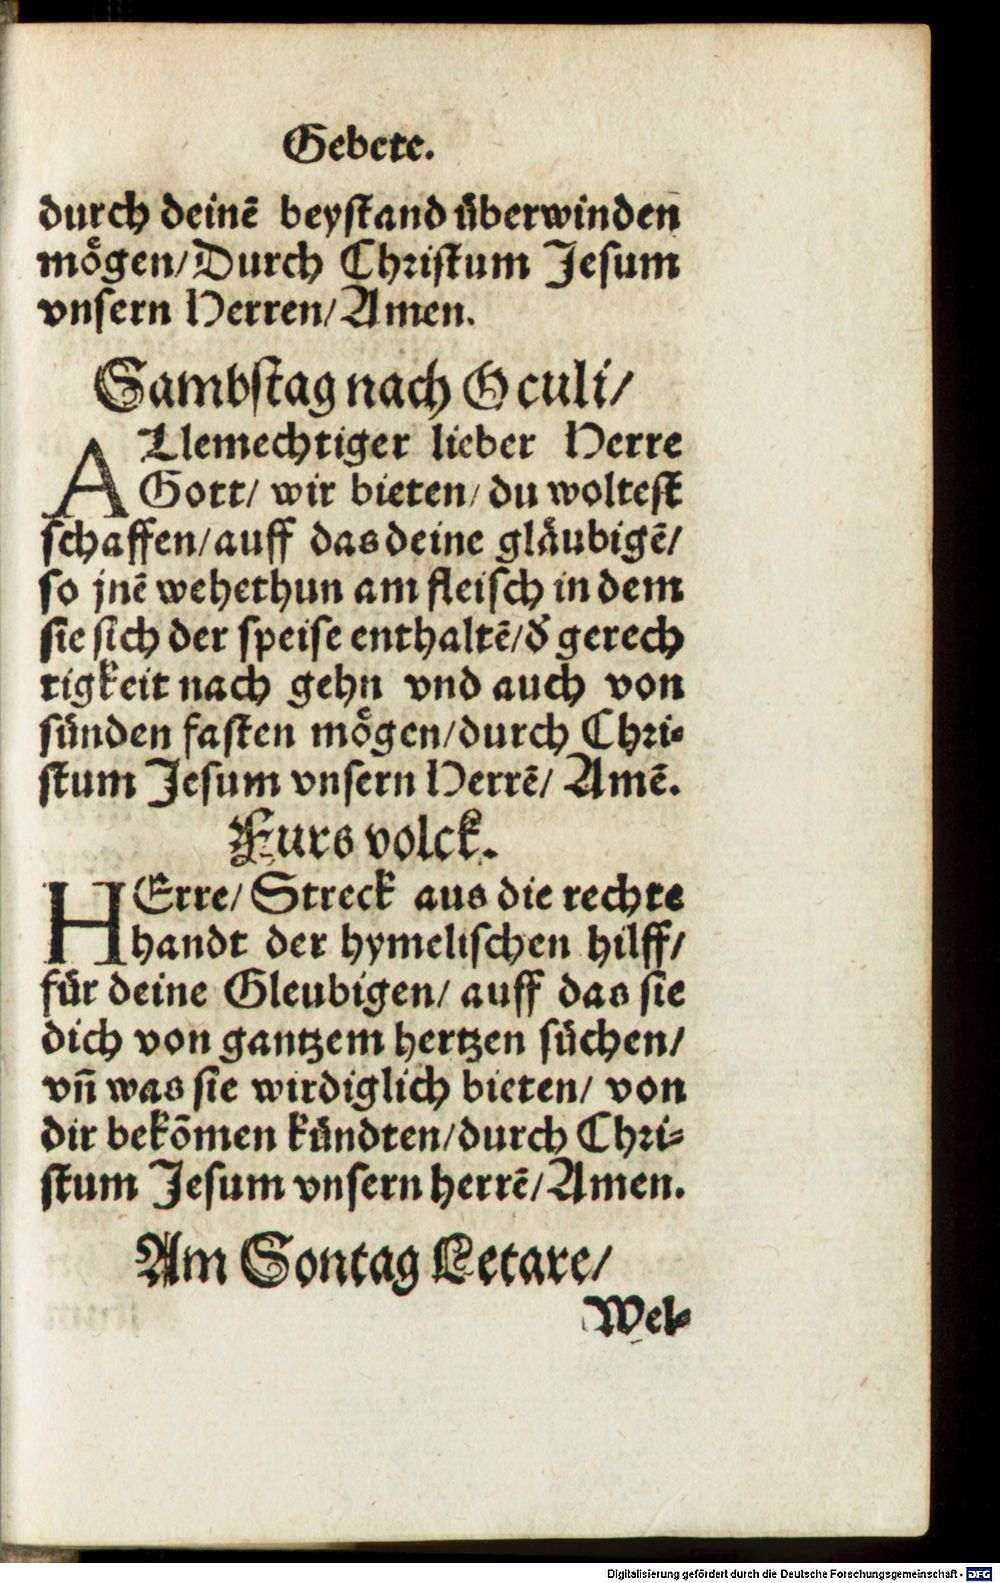 Gebete.
durch deinē beystand überwinden
mögen/Durch Christum Jesum
vnsern Herren/Amen.
Sambstag nach Oculi/
ALlemechtiger lieber Herre
Gott/ wir bieten/ du woltest
schaffen/auff das deine gläubigē/
so jnē wehethun am fleisch in dem
sie sich der speise enthaltē/d̕ gerech
tigkeit nach gehn vnd auch von
sünden fasten mögen/durch Chri-
stum Jesum vnsern Herrē/ Amē.
Furs volck.
HErre/ Streck aus die rechte
handt der hymelischen hilff/
für deine Gleubigen/ auff das sie
dich von gantzem hertzen süchen/
vñ was sie wirdiglich bieten/ von
dir bekōmen kündten/durch Chri-
stum Jesum vnsern herrē/Amen.
Am Sontag Letare/
Wel-
Digitalisierung gefördert durch die Deutsche Forschungsgemeinschaft - DFG